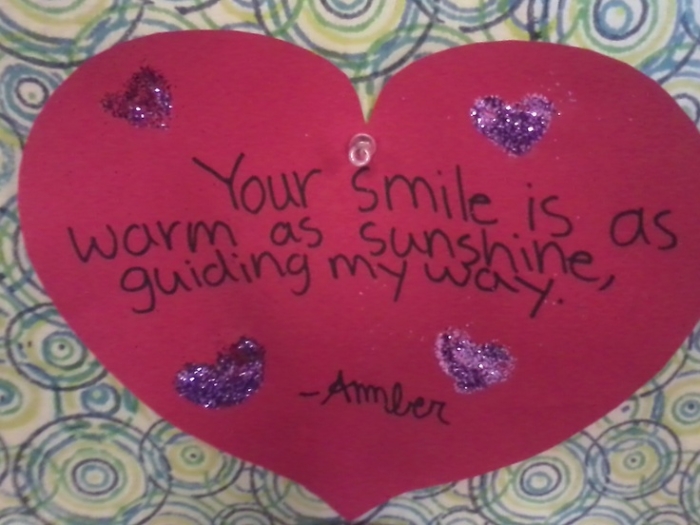 Your smile is as
warm as sunshine,
guiding my way.
-Amber